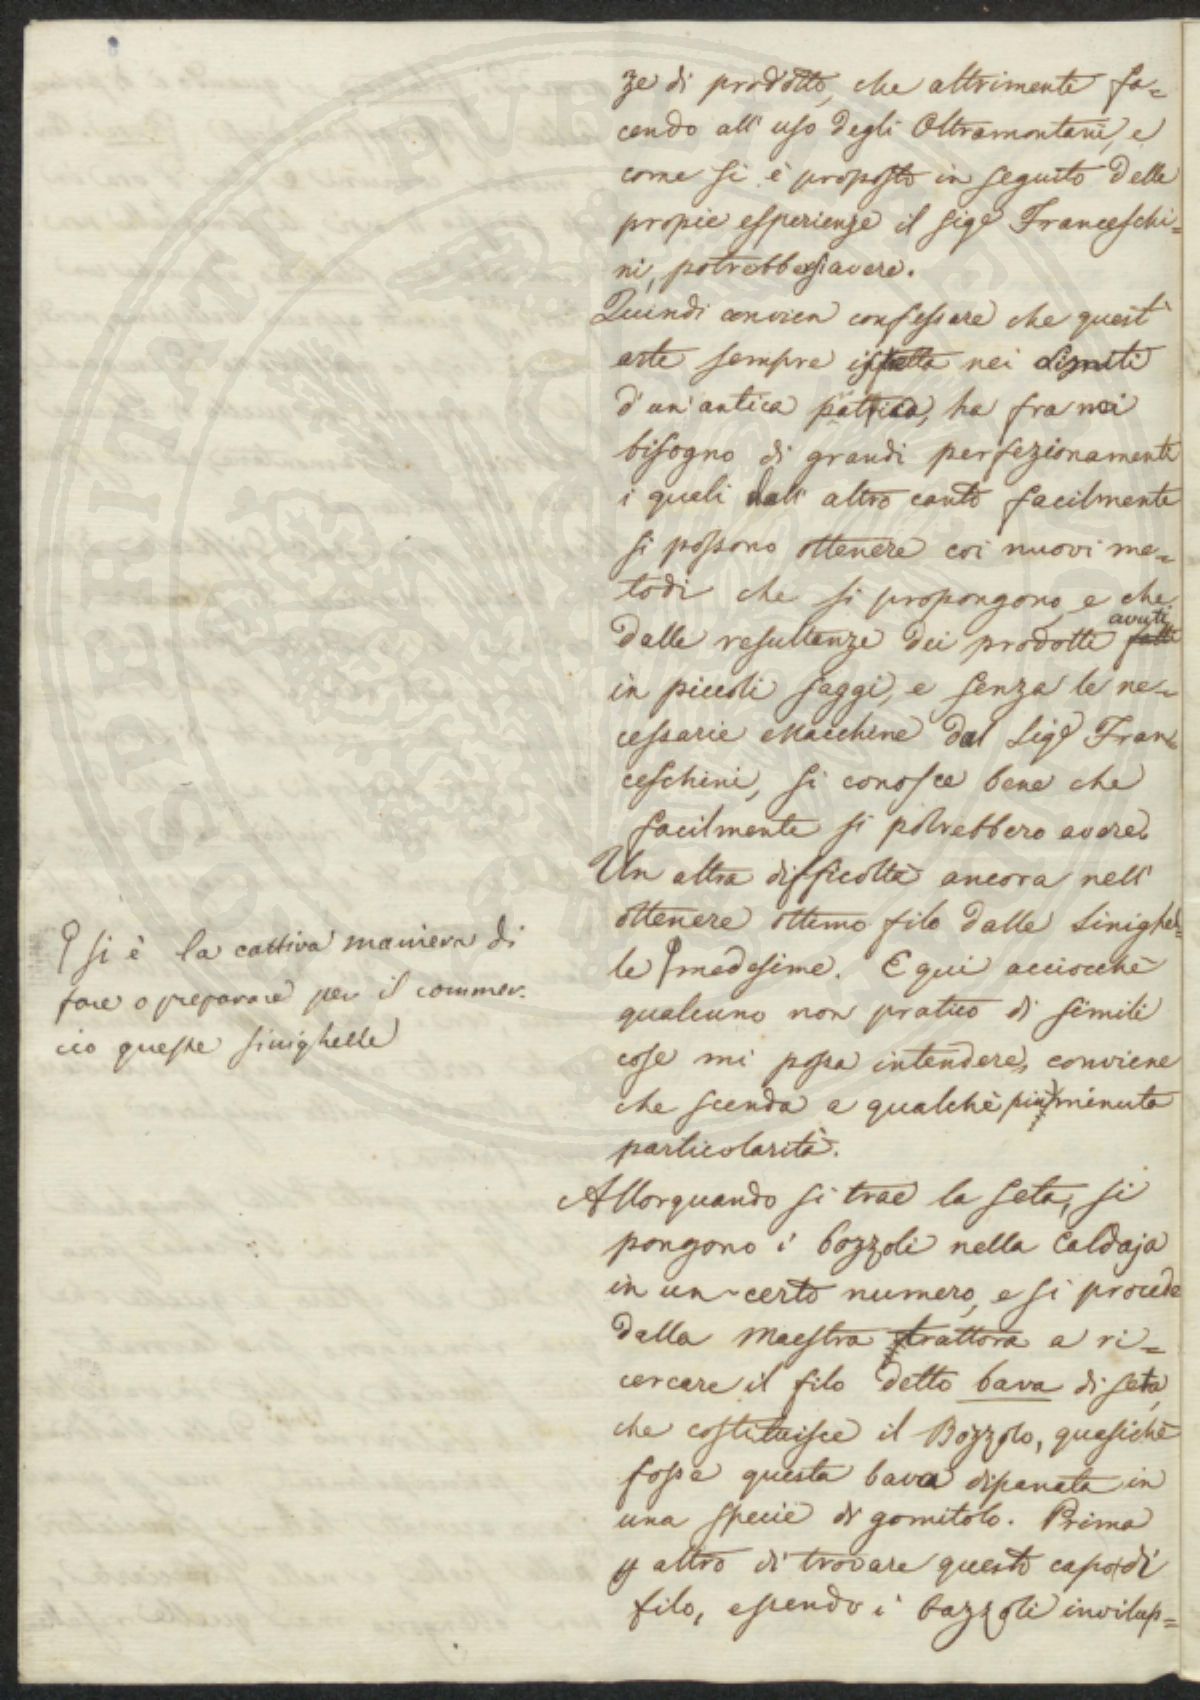 ze di prodotto, che altrimenti fa=
cendo all' uso degli Oltramontani, e
come si è proposto in seguito delle
propie esperienze il Sigr Franceschi=
ni, potrebbesi avere.
Quindi convien confessare che quest'
arte sempre nei Limiti
d'un' antica pratica, ha fra noi
bisogno di grandi perfezionamenti
i quali dall' altro canto facilmente
si possono ottenere coi nuovi me=
todi che si propongono, e che
dalle resultanze dei prodotti avuti fatti
in piccoli saggi, e senza le ne=
cessarie Macchine dal Sigr Fran=
ceschini, si conosce bene che
facilmente si potrebbero avere.
Un altra difficoltà ancora nell'
ottenere ottimo filo dalle Sinighel=
le medesime. E qui acciocchè
qualcuno non pratico di simili
cose mi possa intendere, conviene
che scenda a qualche più minuta
particolarità.
Allorquando si trae la seta, si
pongono i bozzoli nella Caldaja
in un certo numero, e si procede
dalla Maestra trattora a ri=
cercare il filo detto bava di seta,
che costituisce il Bozzolo, quasichè
fosse questa bava dipanata in
una specie di gomitolo. Prima
altro di trovare questo capo di
filo, essendo i bozzoli invilup=
si è la cattiva maniera di
fare o preparare per il commer=
cio queste sinighelle